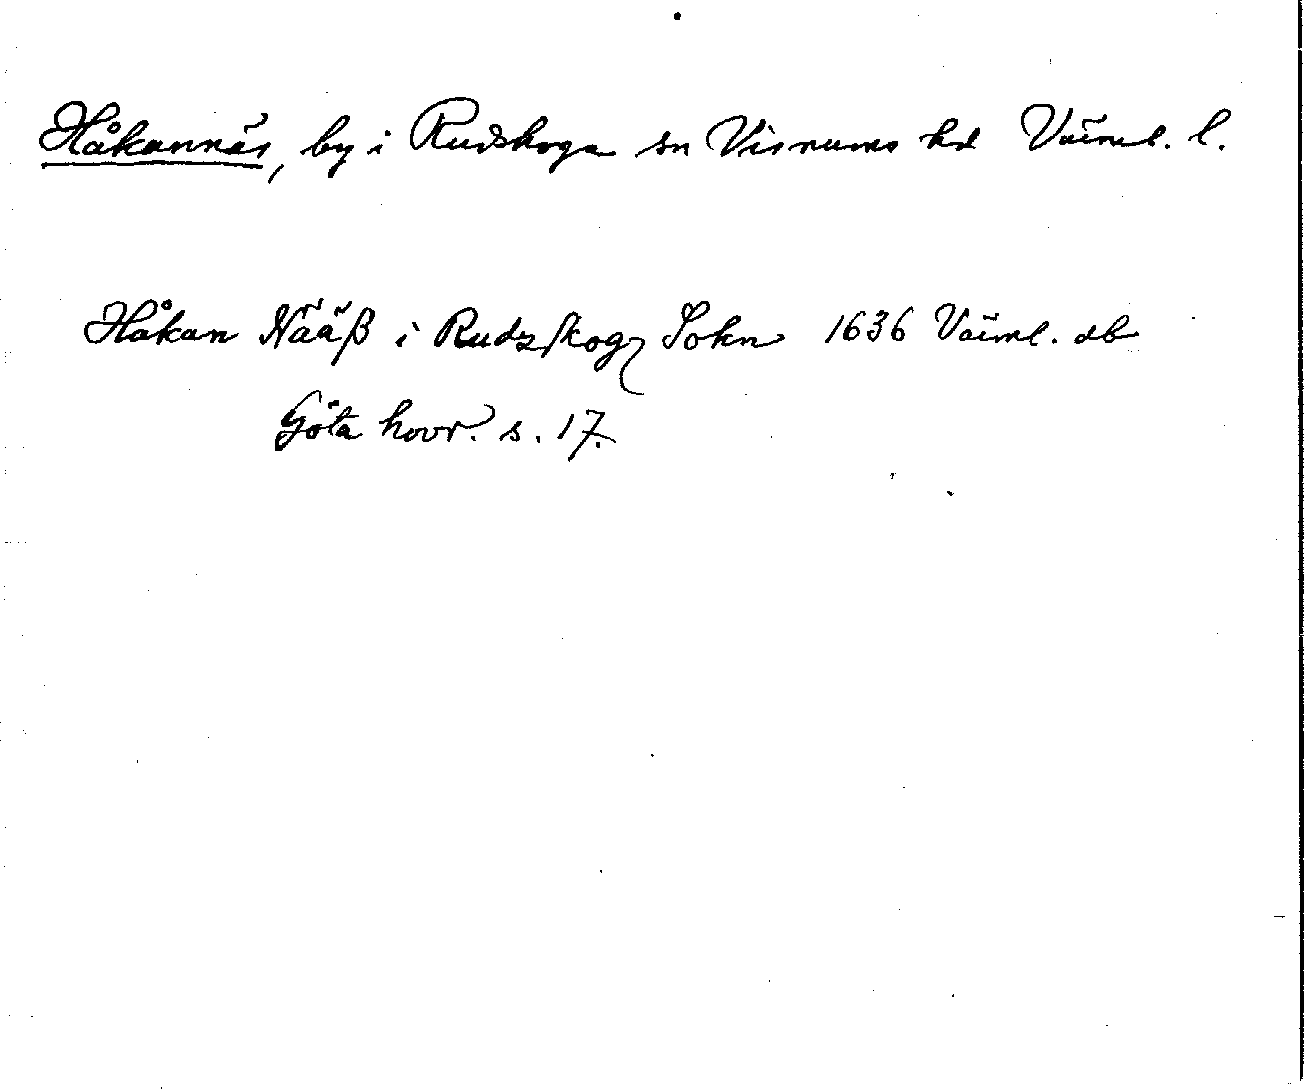 Håkannäs, by i Rudskoga sn Visnums hd Värml. l.
Håkan Nääß i Rudzskogz Sokn 1636 Värml. db
Göta hovr. s. 17.